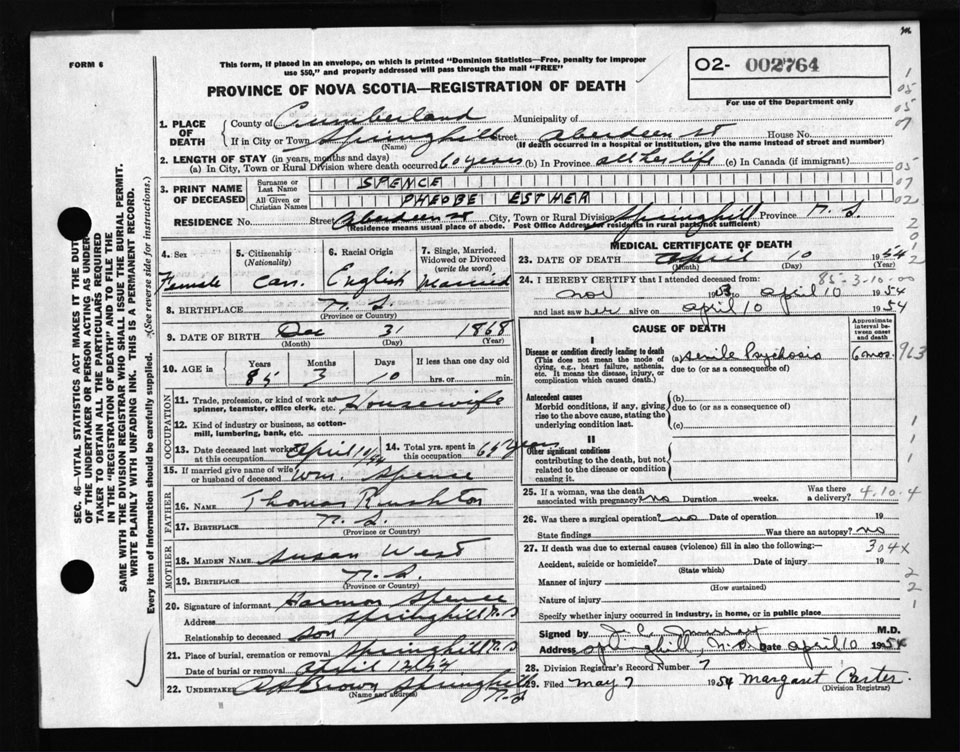 FORM 6
This form, if placed in an envelope, on which is printed "Dominion Statistics—Free, penalty for improper
use $50," and properly addressed will pass through the mail "FREE"
O2- 002764
For use of the Department only
PROVINCE OF NOVA SCOTIA—REGISTRATION OF DEATH
1. PLACE OF DEATH
County of Cumberland Municipality of
If in City or Town Springhill Street Aberdeen St House No.
(Name) (If death occurred in a hospital or institution, give the name instead of street and number)
2. LENGTH OF STAY (in years, months and days)
(a) In City, Town or Rural Division where death occurred 60 years (b) In Province all her life (c) In Canada (if immigrant)
3. PRINT NAME OF DECEASED
Surname or Last Name SPENCE
All Given or Christian Names PHEOBE ESTHER
RESIDENCE No. Street Aberdeen St City, Town or Rural Division Springhill Province N. S.
(Residence means usual place of abode. Post Office Address for residents in rural parts not sufficient)
4. Sex
Female
5. Citizenship
(Nationality)
Can.
6. Racial Origin
English
7. Single, Married, Widowed or Divorced
(write the word)
Married
8. BIRTHPLACE N. S.
(Province or Country)
9. DATE OF BIRTH Dec 31 1868
(Month) (Day) (Year)
10. AGE in Years Months Days If less than one day old
85 3 10 hrs. or min.
OCCUPATION
11. Trade, profession, or kind of work as
spinner, teamster, office clerk, etc. Housewife
12. Kind of industry or business, as cotton-
mill, lumbering, bank, etc.
13. Date deceased last worked at this occupation April
14. Total yrs. spent in this occupation 65 years
15. If married give name of wife
or husband of deceased Wm. Spence
FATHER
16. NAME Thomas Rushton
17. BIRTHPLACE N. S.
(Province or Country)
MOTHER
18. MAIDEN NAME Susan West
19. BIRTHPLACE N. S.
(Province or Country)
20. Signature of informant Harmon Spence
Address Springhill N. S
Relationship to deceased son
21. Place of burial, cremation or removal Springhill N. S
Date of burial or removal April 12
22. UNDERTAKER Brown Springhill
N-S
(Name and address)
MEDICAL CERTIFICATE OF DEATH
23. DATE OF DEATH April 10 1954
(Month) (Day) (Year)
24. I HEREBY CERTIFY that I attended deceased from: 85-3-10-00
Nov 1953 to April 10 1954
and last saw her alive on April 10 1954
CAUSE OF DEATH
Approximate interval between onset and death
I
Disease or condition directly leading to death
(This does not mean the mode of
dying, e.g., heart failure, asthenia,
etc. It means the disease, injury, or
complication which caused death.)
(a) Senile Psychosis 6 mos.
due to (or as a consequence of)
Antecedent causes
Morbid conditions, if any, giving
rise to the above cause, stating the
underlying condition last.
(b)
due to (or as a consequence of)
(c)
II
Other significant conditions
contributing to the death, but not
related to the disease or condition
causing it.
25. If a woman, was the death
associated with pregnancy? no Duration weeks. Was there a delivery? 4.10.4
26. Was there a surgical operation? no Date of operation 19
State findings Was there an autopsy? no
27. If death was due to external causes (violence) fill in also the following:— 304x
Accident, suicide or homicide? Date of injury 19
(State which)
Manner of injury
(How sustained)
Nature of injury
Specify whether injury occurred in industry, in home, or in public place
Signed by Murray M.D.
Address Springhill, N.S. Date April 10 1954
28. Division Registrar's Record Number 7
29. Filed May 7 1954 Margaret Carter
(Division Registrar)
SEC. 46—VITAL STATISTICS ACT MAKES IT THE DUTY
OF THE UNDERTAKER OR PERSON ACTING AS UNDER-
TAKER TO OBTAIN ALL THE PARTICULARS REQUIRED
IN THE "REGISTRATION OF DEATH" AND TO FILE THE
SAME WITH THE DIVISION REGISTRAR WHO SHALL ISSUE THE BURIAL PERMIT.
WRITE PLAINLY WITH UNFADING INK. THIS IS A PERMANENT RECORD.
Every item of Information should be carefully supplied. (See reverse side for instructions.)